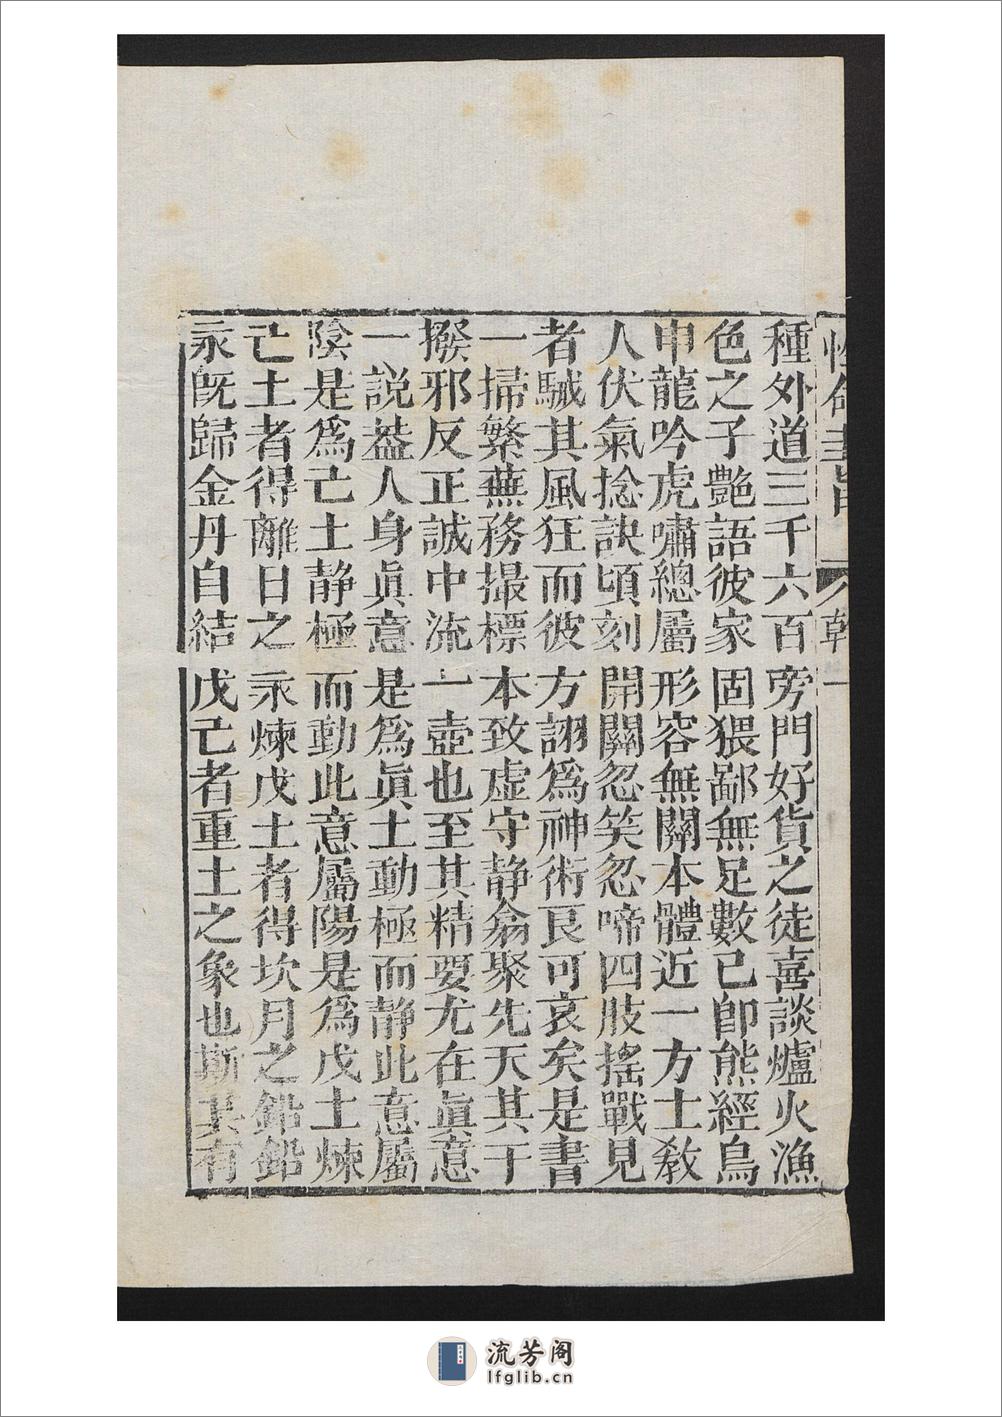 種外道三千六百旁門好貨之徒喜談爐火漁
色之子艷語彼家固猥鄙無足數已卽熊經鳥
申龍吟虎嘯總屬形容無關本體近一方士教
人伏氣捻訣頃刻開關忽笑忽啼四肢搖戰見
者駴其風狂而彼方詡爲神術良可哀矣是書
一掃繁蕪務撮標本致虛守静翕聚先天其于
撥邪反正誠中流一壺也至其精要尤在眞意
一説葢人身眞意是爲眞土動極而静此意屬
陰是爲己土静極而動此意屬陽是爲戊土煉
己土者得離日之汞煉戊土者得坎月之鉛鉛
汞旣歸金丹自結戊己者重土之象也斯其有
流芳阁
lfglib.cn